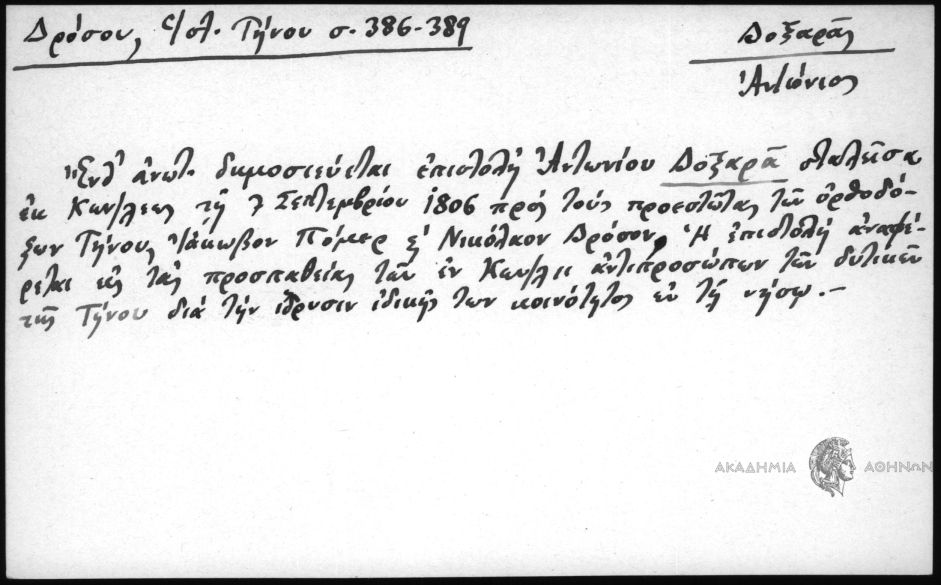 Δρόσου, Ἱστ. Τήνου σ. 386-389
Δοξαρᾶς
Ἀντώνιος
Ἔνθ' ἀνωτ. δημοσιεύεται ἐπιστολὴ Ἀντωνίου Δοξαρᾶ σταλεῖσα
ἐκ Κων/λεως τῇ 7 Σεπτεμβρίου 1806 πρὸς τοὺς προεστῶτας τῶν ὀρθοδό-
ξων Τήνου, Ἰάκωβον Πόμερ ϗ Νικόλαον Δρόσον. Ἡ ἐπιστολὴ ἀναφέ-
ρεται εἰς τὰς προσπαθείας τῶν ἐν Κων/λει ἀντιπροσώπων τῶν δυτικῶν
τῆς Τήνου διὰ τὴν ἵδρυσιν ἰδικῆς των κοινότητος ἐν τῇ νήσῳ.-
ΑΚΑΔΗΜΙΑ ΑΘΗΝΩΝ